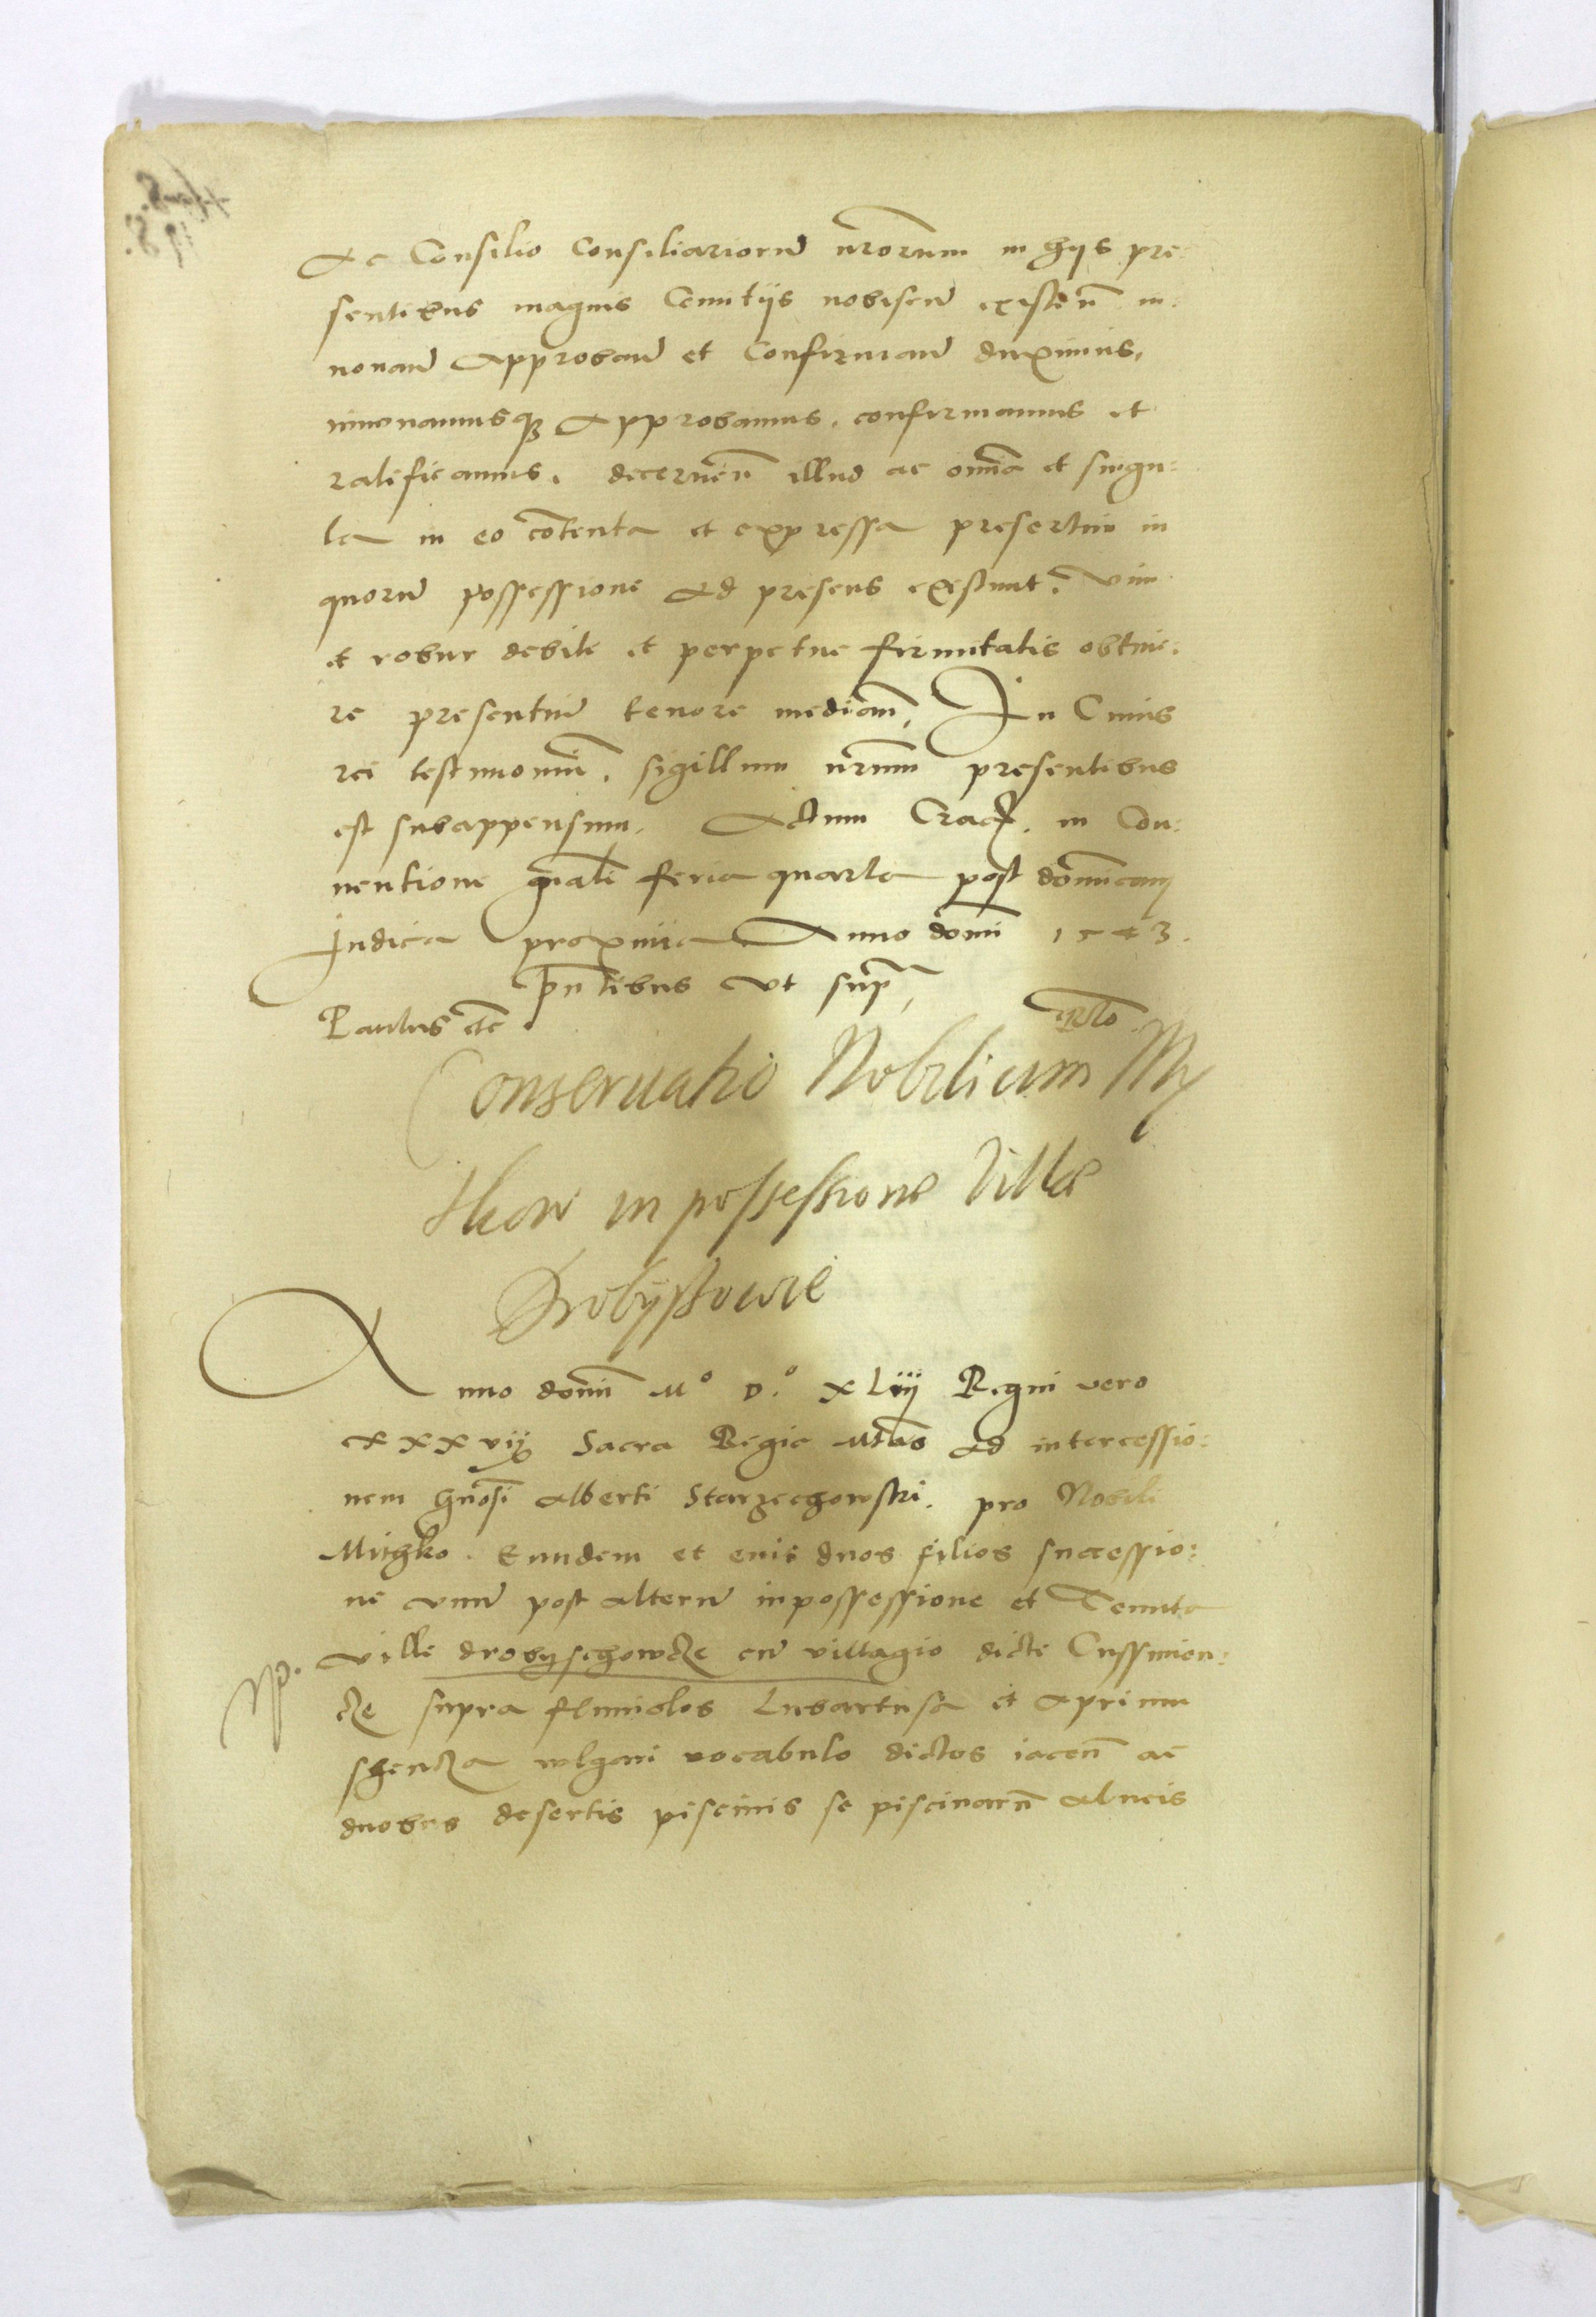 Ac Consilio Consiliarioru nrorum in hijs pre:
sentibus magnis Comitijs nobiscu existen in:
nouand Approband et Confirmand duximus,
innouamusq Approbamus, confirmamus et
ratificamus, decernen illud ac omia et singu:
la in eo cotenta et expressa presertim in
quoru possessione Ad presens existunt, vim
et robur debite et perpetue firmitatis obtine:
re presentiu tenore median, In Cuius
rei testimoniu, sigillum nrum presentibus
est subappensum. Actum Crac, in Con:
uentione gnali feria quarta post dominicam
Judica proxima Anno domi 1543.
pntibus vt sup,
Paulus etc
Rto
Conseruatio Nobilium My
thkow in possessione Villae
Drobyssowcze
Anno domini Mº Dº XLiij Regni vero
XXXvij Sacra Regie Mtas Ad intercessio:
nem Gnosi Alberti Starzechowski, pro Nobili
Mithko. Eundem et eius duos filios successio:
ne vnu post alteru in possessione et Tenuta
ville drobyschowcze cu villagio dicte Cussmien:
cze supra fluuiolos Lubartusa et
vlgari vocabulo dictos iacen ac
duobus desertis piscinis se piscinaru alueis
Np.